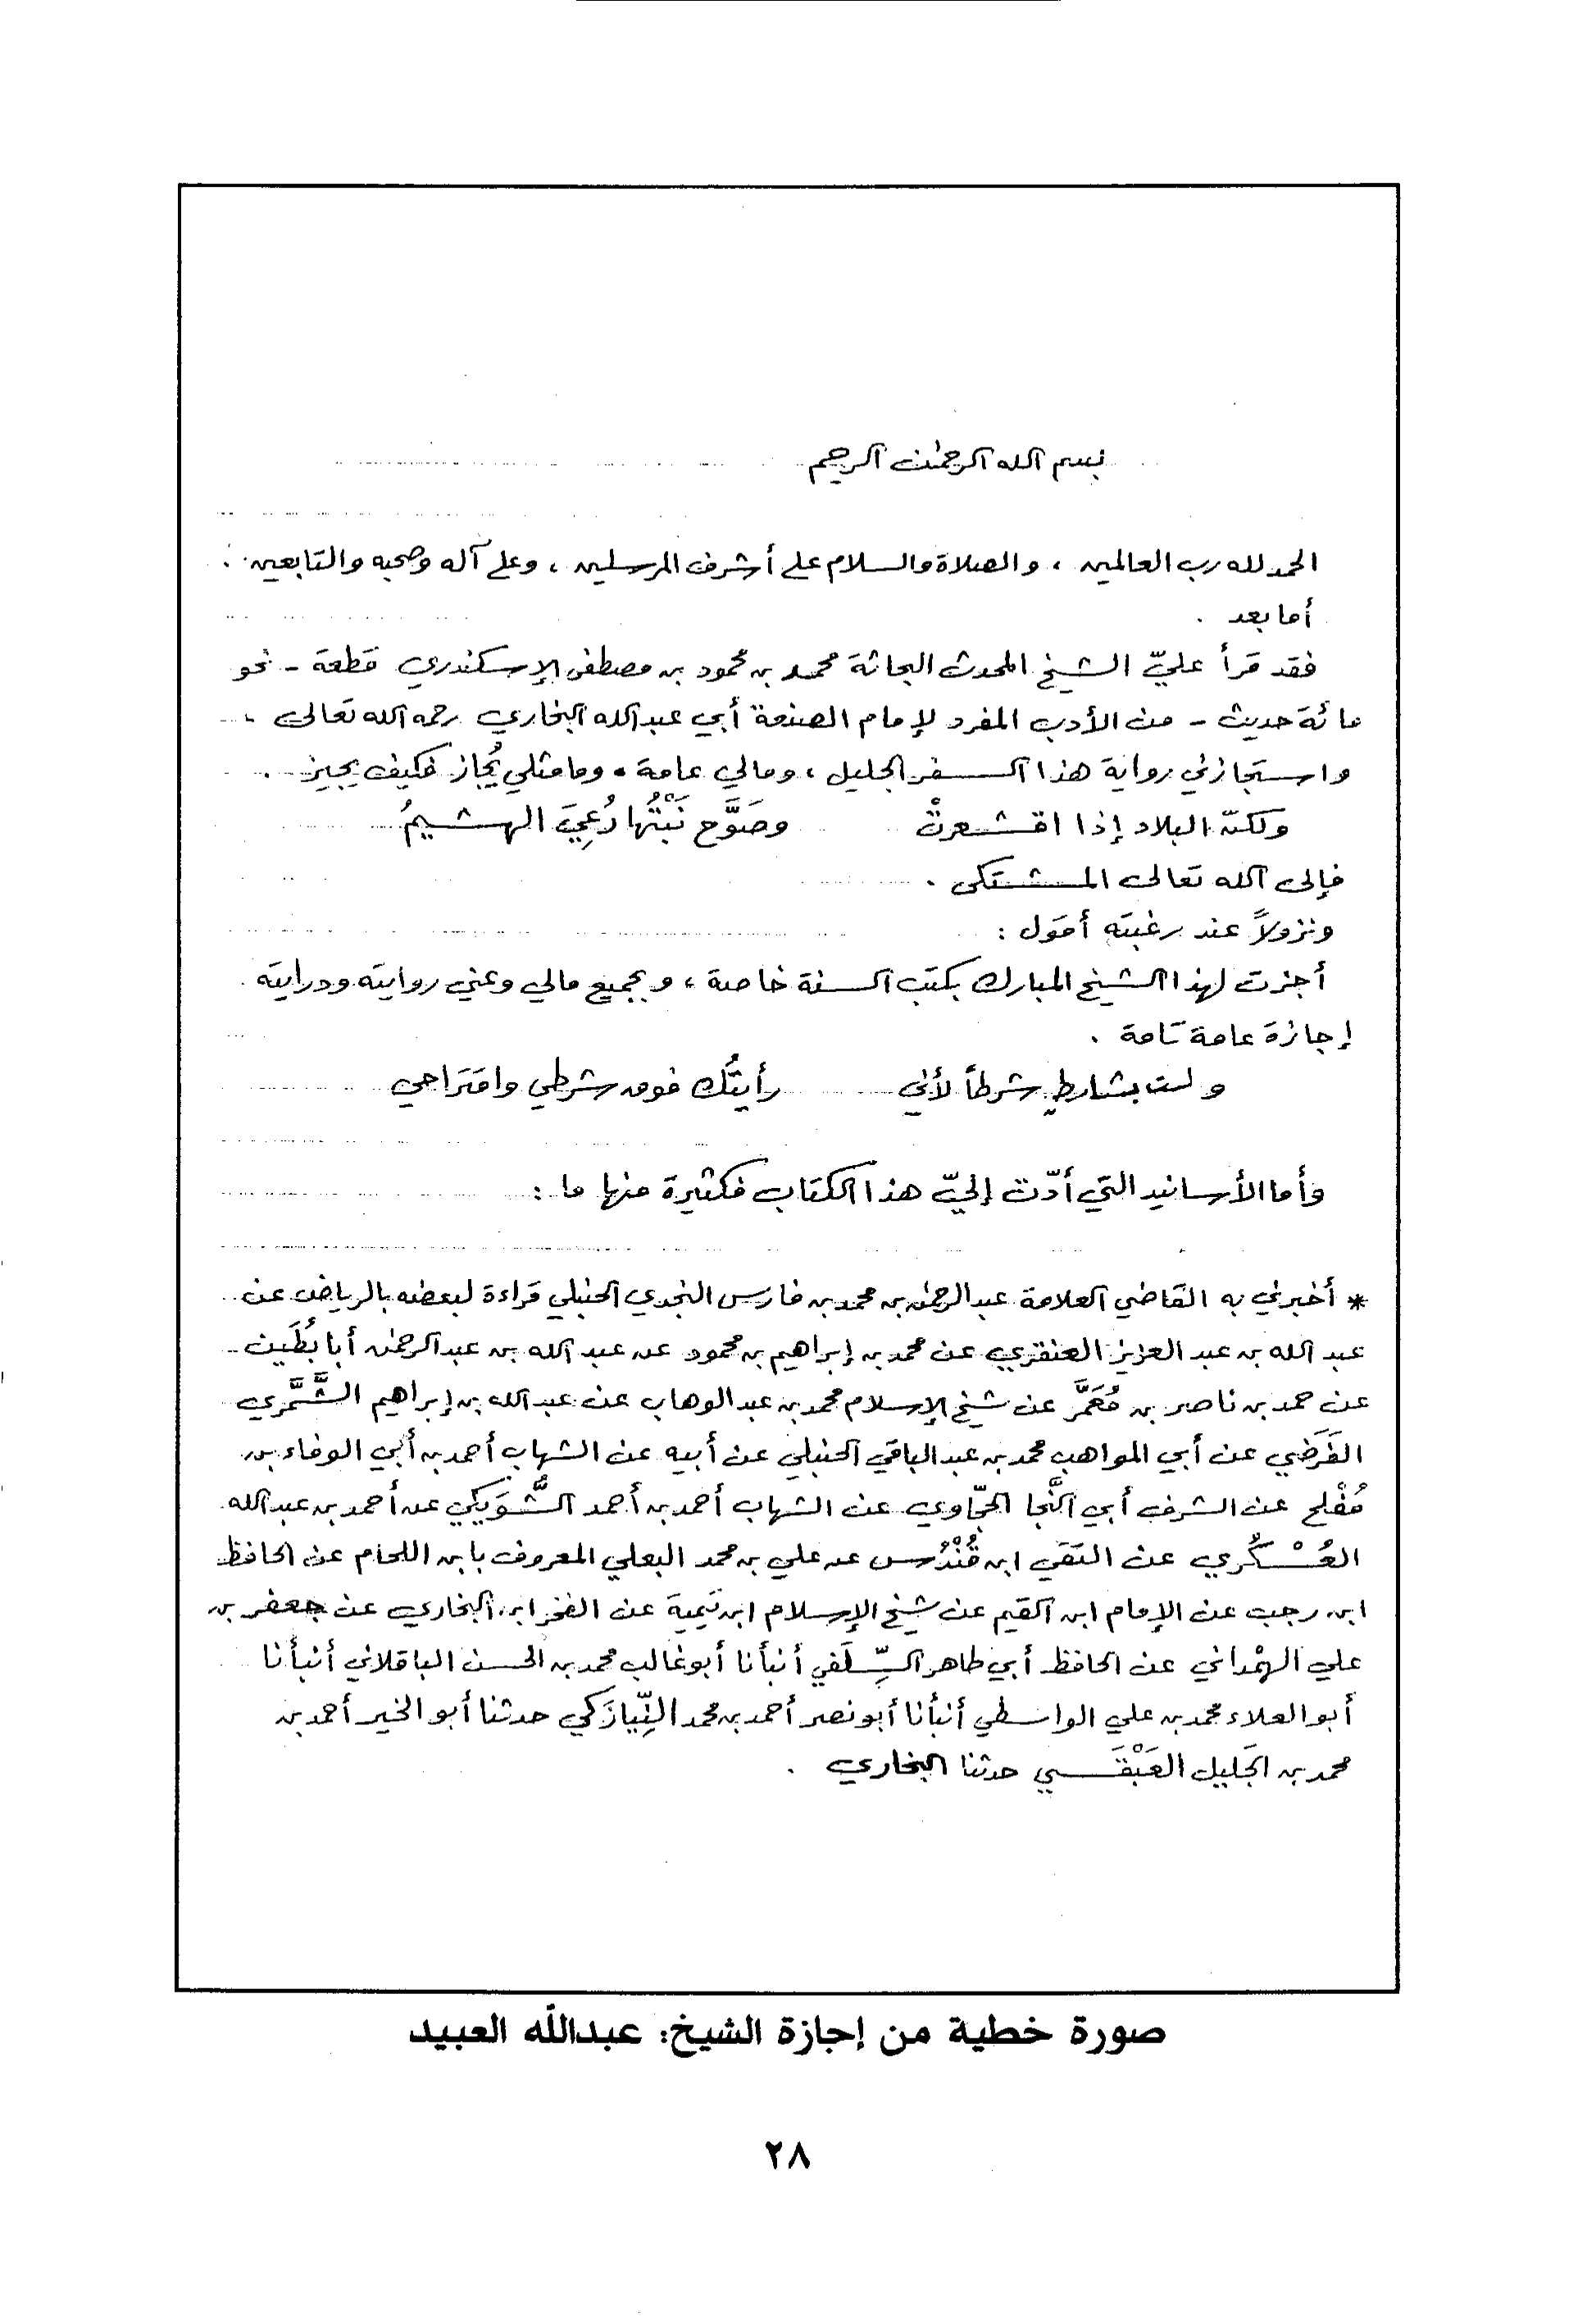 بسم الله الرحمٰن الرحيم
الحمد لله رب العالمين ، والصلاة والسلام على أشرف المرسلين ، وعلى آله وصحبه والتابعين .
أما بعد .
فقد قرأ عليّ الشيخ المحدث البحاثة محمد بن محمود بن مصطفى الإسكندري قطعة - نحو
مائة حديث - من الأدب المفرد لإمام الصنعة أبي عبد الله البخاري رحمه الله تعالى ،
واستجازني رواية هذا السفر الجليل ، ومالي عامة . وما مثلي يُجاز فكيف يجيز .
ولكنّ البلاد إذا اقشعرتْ وصَوَّح نَبْتُها رُعِيَ الهشيمُ
فإلى الله تعالى المشتكى .
ونزولاً عند رغبته أقول :
أجزت لهذا الشيخ المبارك بكتب السنة خاصة ، وبجميع مالي وعني روايته ودرايته
إجازة عامة تامة .
ولست بشارطٍ شرطاً لأني رأيتُك فوق شرطي واقتراحي
وأما الأسانيد التي أدّت إليّ هذا الكتاب فكثيرة منها ما :
* أخبرني به القاضي العلامة عبد الرحمٰن بن محمد بن فارس النجدي الحنبلي قراءة لبعضه بالرياض عن
عبد الله بن عبد العزيز العنقري عن محمد بن إبراهيم بن محمود عن عبد الله بن عبد الرحمٰن أبا بُطَين
عن حمد بن ناصر بن مُعَمَّر عن شيخ الإسلام محمد بن عبد الوهاب عن عبد الله بن إبراهيم الشَّمَّري
الفَرَضي عن أبي المواهب محمد بن عبد الباقي الحنبلي عن أبيه عن الشهاب أحمد بن أبي الوفاء بن
مُفْلح عن الشرف أبي النَّجا الحجّاوي عن الشهاب أحمد بن أحمد الشُّوَيكي عن أحمد بن عبد الله
العُسْكُري عن التقي ابن قُنْدُس عن علي بن محمد البعلي المعروف بابن اللحام عن الحافظ
ابن رجب عن الإمام ابن القيم عن شيخ الإسلام ابن تيمية عن الفخر ابن البخاري عن جعفر بن
علي الهمْداني عن الحافظ أبي طاهر السِّلَفي أنبأنا أبو غالب محمد بن الحسن الباقلاني أنبأنا
أبو العلاء محمد بن علي الواسطي أنبأنا أبو نصر أحمد بن محمد النِّيازَكي حدثنا أبو الخير أحمد بن
محمد بن الجَليل العَبْقَسي حدثنا البخاري .
صورة خطية من إجازة الشيخ: عبدالله العبيد
٢٨